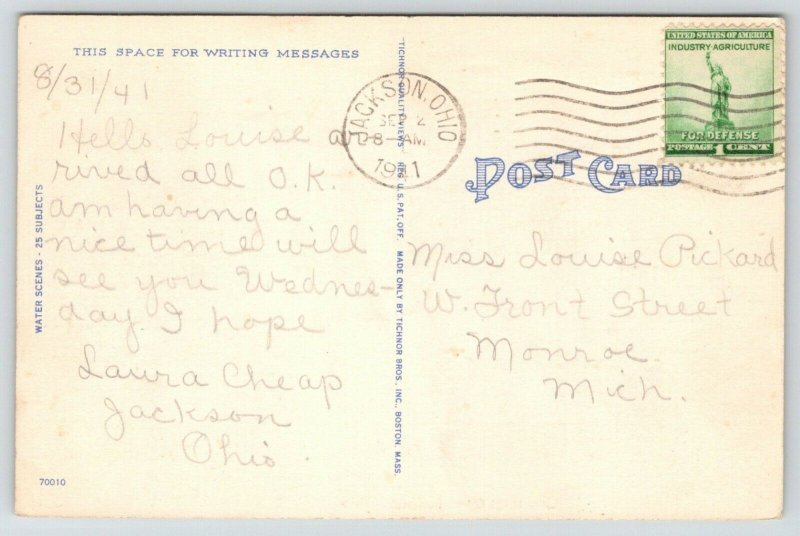 THIS SPACE FOR WRITING MESSAGES
8/31/41
Hello Louise
rived all O.K.
am having a
nice time will
see you Wednes-
day. I hope
Laura Cheap
Jackson
Ohio
WATER SCENES - 25 SUBJECTS
70010
"TICHNOR QUALITY VIEWS" REG. U. S. PAT. OFF. MADE ONLY BY TICHNOR BROS. INC., BOSTON, MASS.
JACKSON, OHIO
SEP 2
8-AM
1941
UNITED STATES OF AMERICA
INDUSTRY AGRICULTURE
FOR DEFENSE
POSTAGE 1 CENT
POST CARD
Miss Louise Pickard
W. Front Street
Monroe
Mich.